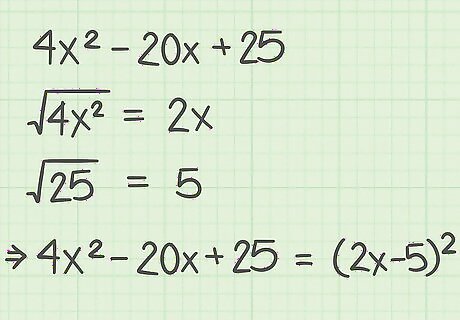 4x² - 20x + 25
√4x² = 2x
√25 = 5
⇒ 4x² - 20x + 25 = (2x-5)²